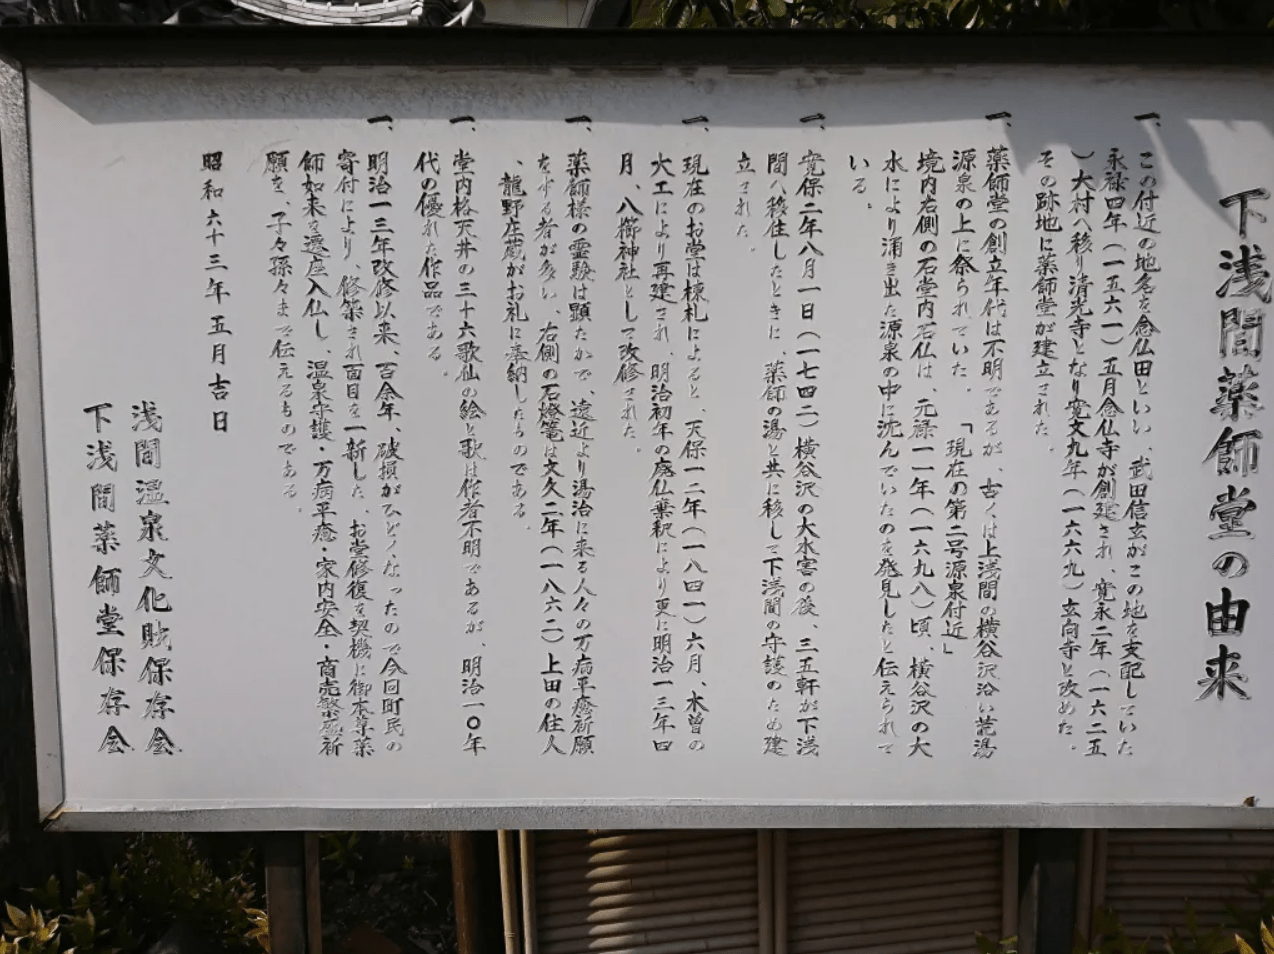 下浅間薬師堂の由来
一、この付近の地名を念仏田といい、武田信玄がこの地を支配していた
永禄四年（一五六一）五月念仏寺が創建され、寛永二年（一六二五
）大村へ移り清光寺となり寛文九年（一六六九）玄向寺と改めた。
その跡地に薬師堂が建立された。
一、薬師堂の創立年代は不明であるが、古くは上浅間の横谷沢沿い荒湯
源泉の上に祭られていた。「現在の第二号源泉付近」
境内右側の石堂内石仏は、元禄一一年（一六九八）頃、横谷沢の大
水により涌き出た源泉の中に沈んでいたのを発見したと伝えられて
いる。
一、寛保二年八月一日（一七四二）横谷沢の大水害の後、三五軒が下浅
間へ移住したときに、薬師の湯と共に移して下浅間の守護のため建
立された。
一、現在のお堂は棟札によると、天保一二年（一八四一）六月、木曽の
大工により再建され、明治初年の廃仏棄釈により更に明治一三年四
月、八櫛神社として改修された。
一、薬師様の霊験は顕たかで、遠近より湯治に来る人々の万病平癒祈願
をする者が多い、右側の石燈篭は文久二年（一八六二）上田の住人
、龍野庄蔵がお礼に奉納したものである。
一、堂内格天井の三十六歌仙の絵と歌は作者不明であるが、明治一〇年
代の優れた作品である。
一、明治一三年改修以来、百余年、破損がひどくなったので今回町民の
寄付により、修築され面目を一新した、お堂修復を契機に御本尊薬
師如来を遷座入仏し、温泉守護・万病平癒・家内安全・商売繁盛祈
願を、子々孫々まで伝えるものである。
昭和六十三年五月吉日
浅間温泉文化財保存会
下浅間薬師堂保存会